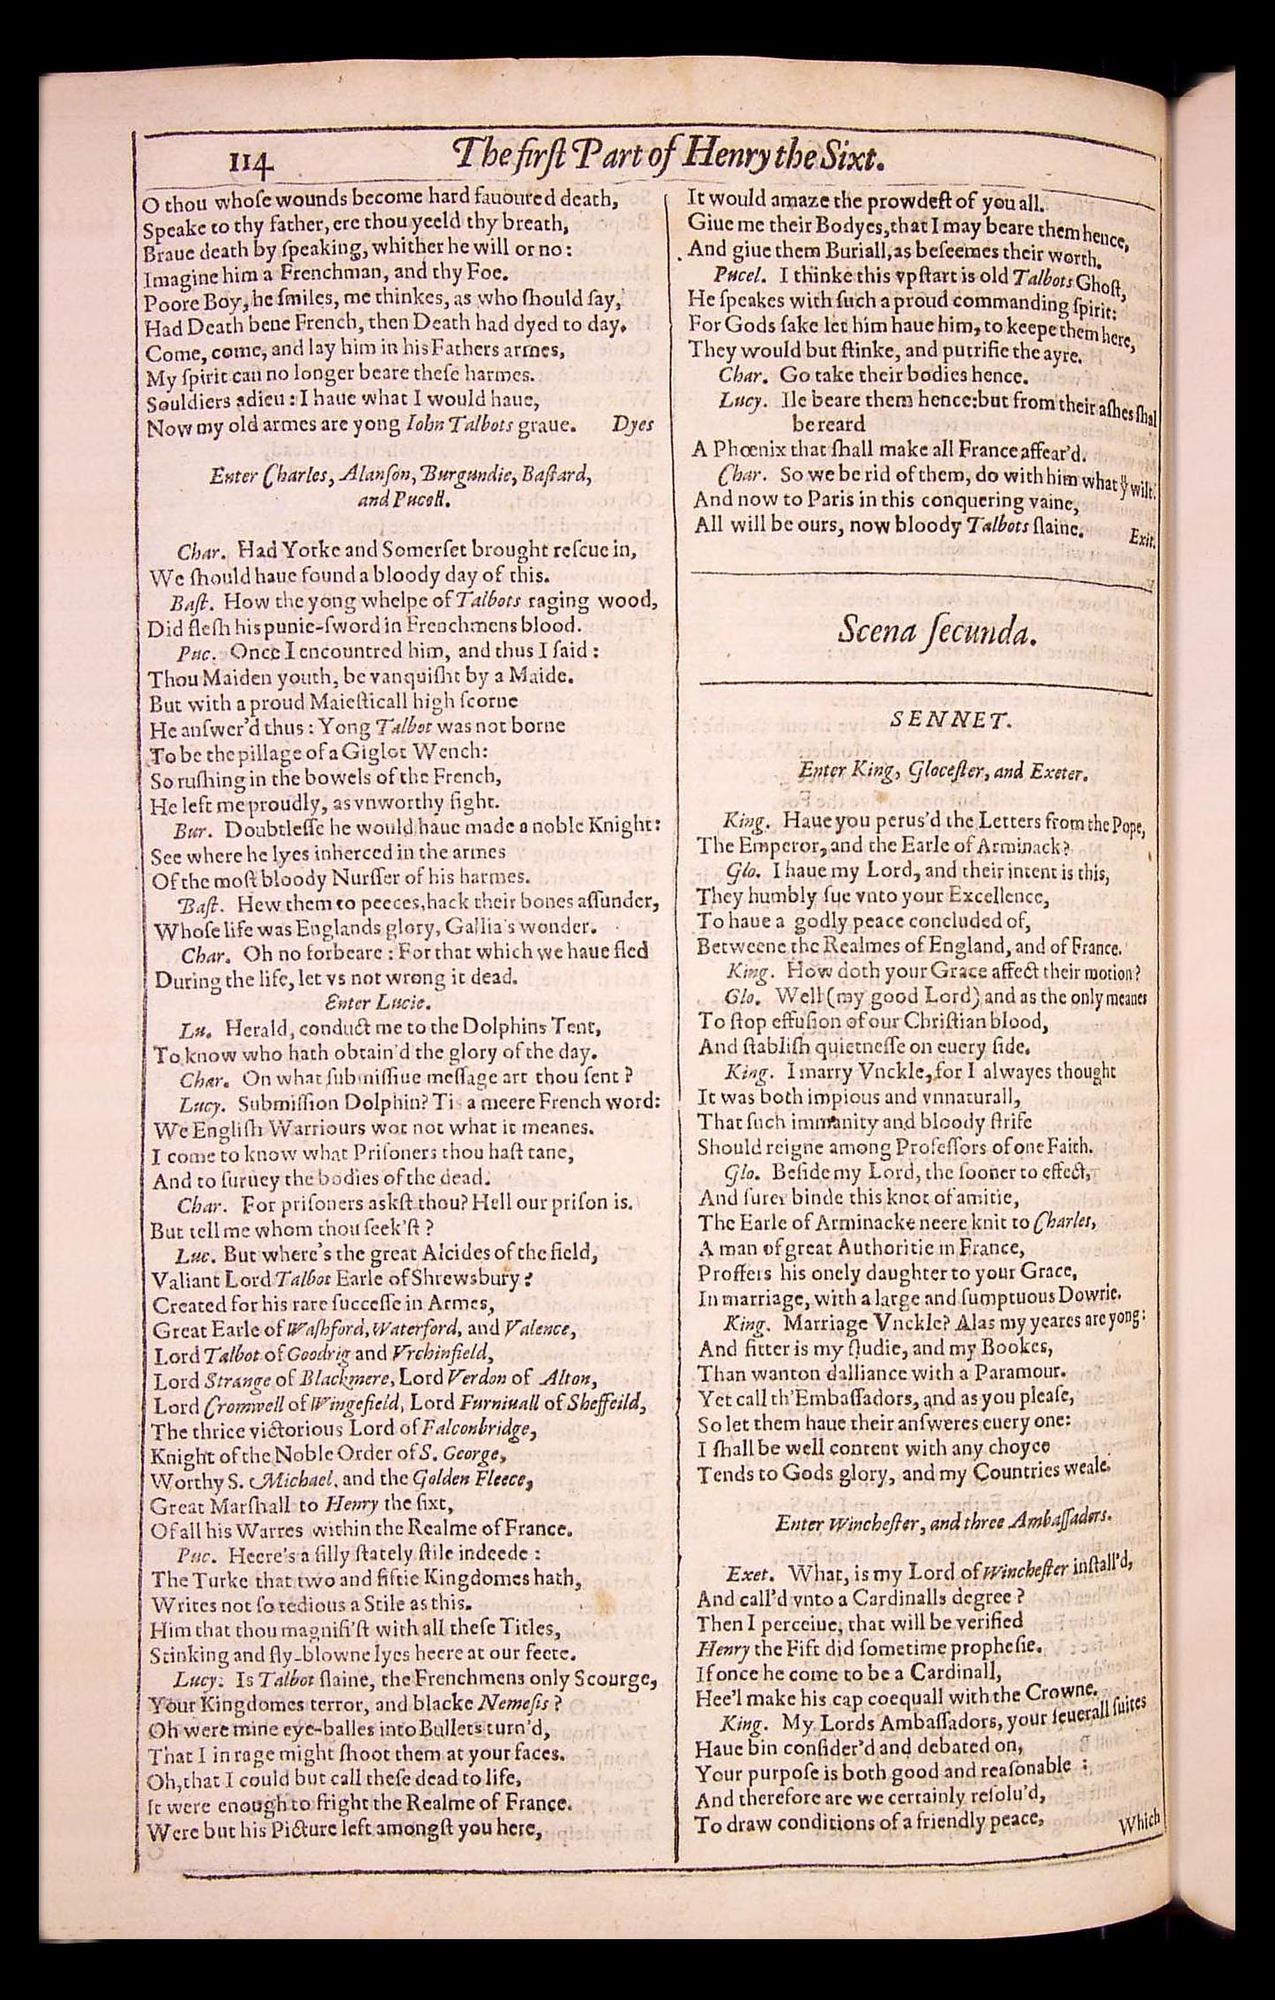 114
The firſt Part of Henry the Sixt.
O thou whoſe wounds become hard fauoured death,
Speake to thy father, ere thou yeeld thy breath,
Braue death by ſpeaking, whither he will or no:
Imagine him a Frenchman, and thy Foe.
Poore Boy, he ſmiles, me thinkes, as who ſhould ſay,
Had Death bene French, then Death had dyed to day.
Come, come, and lay him in his Fathers armes,
My ſpirit can no longer beare theſe harmes.
Souldiers adieu: I haue what I would haue,
Now my old armes are yong Iohn Talbots graue. Dyes
Enter Charles, Alanſon, Burgundie, Baſtard,
and Pucell.
Char. Had Yorke and Somerſet brought reſcue in,
We ſhould haue found a bloody day of this.
Baſt. How the yong whelpe of Talbots raging wood,
Did fleſh his punie-ſword in Frenchmens blood.
Puc. Once I encountred him, and thus I ſaid:
Thou Maiden youth, be vanquiſht by a Maide.
But with a proud Maieſticall high ſcorne
He anſwer'd thus: Yong Talbot was not borne
To be the pillage of a Giglot Wench:
So ruſhing in the bowels of the French,
He left me proudly, as vnworthy fight.
Bur. Doubtleſſe he would haue made a noble Knight:
See where he lyes inherced in the armes
Of the moſt bloody Nurſſer of his harmes.
Baſt. Hew them to peeces, hack their bones aſſunder,
Whoſe life was Englands glory, Gallia's wonder.
Char. Oh no forbeare: For that which we haue fled
During the life, let vs not wrong it dead.
Enter Lucie.
Lu. Herald, conduct me to the Dolphins Tent,
To know who hath obtain'd the glory of the day.
Char. On what ſubmiſſiue meſſage art thou ſent?
Lucy. Submiſſion Dolphin? Tis a meere French word:
We Engliſh Warriours wot not what it meanes.
I come to know what Priſoners thou haſt tane,
And to ſuruey the bodies of the dead.
Char. For priſoners askſt thou? Hell our priſon is.
But tell me whom thou ſeek'ſt?
Luc. But where's the great Alcides of the field,
Valiant Lord Talbot Earle of Shrewsbury?
Created for his rare ſucceſſe in Armes,
Great Earle of Waſhford, Waterford, and Valence,
Lord Talbot of Goodrig and Vrchinfield,
Lord Strange of Blackmere, Lord Verdon of Alton,
Lord Cromwell of Wingefield, Lord Furniuall of Sheffeild,
The thrice victorious Lord of Falconbridge,
Knight of the Noble Order of S. George,
Worthy S. Michael, and the Golden Fleece,
Great Marſhall to Henry the ſixt,
Of all his Warres within the Realme of France.
Puc. Heere's a ſilly ſtately ſtile indeede:
The Turke that two and fiftie Kingdomes hath,
Writes not ſo tedious a Stile as this.
Him that thou magnifi'ſt with all theſe Titles,
Stinking and fly-blowne lyes heere at our feete.
Lucy. Is Talbot ſlaine, the Frenchmens only Scourge,
Your Kingdomes terror, and blacke Nemeſis?
Oh were mine eye-balles into Bullets turn'd,
That I in rage might ſhoot them at your faces.
Oh, that I could but call theſe dead to life,
It were enough to fright the Realme of France.
Were but his Picture left amongſt you here,
It would amaze the prowdeſt of you all.
Giue me their Bodyes, that I may beare them hence,
And giue them Buriall, as beſeemes their worth.
Pucel. I thinke this vpſtart is old Talbots Ghoſt,
He ſpeakes with ſuch a proud commanding ſpirit:
For Gods ſake let him haue him, to keepe them here,
They would but ſtinke, and putrifie the ayre.
Char. Go take their bodies hence.
Lucy. Ile beare them hence: but from their aſhes ſhal
be reard
A Phœnix that ſhall make all France affear'd.
Char. So we be rid of them, do with him what yͧ wilt.
And now to Paris in this conquering vaine,
All will be ours, now bloody Talbots ſlaine. Exit.
Scena ſecunda.
SENNET.
Enter King, Gloceſter, and Exeter.
King. Haue you perus'd the Letters from the Pope,
The Emperor, and the Earle of Arminack?
Glo. I haue my Lord, and their intent is this,
They humbly ſue vnto your Excellence,
To haue a godly peace concluded of,
Betweene the Realmes of England, and of France.
King. How doth your Grace affect their motion?
Glo. Well (my good Lord) and as the only meanes
To ſtop effuſion of our Chriſtian blood,
And ſtabliſh quietneſſe on euery ſide.
King. I marry Vnckle, for I alwayes thought
It was both impious and vnnaturall,
That ſuch immanity and bloody ſtrife
Should reigne among Profeſſors of one Faith.
Glo. Beſide my Lord, the ſooner to effect,
And ſurer binde this knot of amitie,
The Earle of Arminacke neere knit to Charles,
A man of great Authoritie in France,
Proffers his onely daughter to your Grace,
In marriage, with a large and ſumptuous Dowrie.
King. Marriage Vnckle? Alas my yeares are yong:
And fitter is my ſtudie, and my Bookes,
Than wanton dalliance with a Paramour.
Yet call th'Embaſſadors, and as you pleaſe,
So let them haue their anſweres euery one:
I ſhall be well content with any choyce
Tends to Gods glory, and my Countries weale.
Enter Wincheſter, and three Ambaſſadors.
Exet. What, is my Lord of Wincheſter inſtall'd,
And call'd vnto a Cardinalls degree?
Then I perceiue, that will be verified
Henry the Fift did ſometime propheſie.
If once he come to be a Cardinall,
Hee'l make his cap coequall with the Crowne.
King. My Lords Ambaſſadors, your ſeuerall ſuites
Haue bin conſider'd and debated on,
Your purpoſe is both good and reaſonable:
And therefore are we certainly reſolu'd,
To draw conditions of a friendly peace,
Which